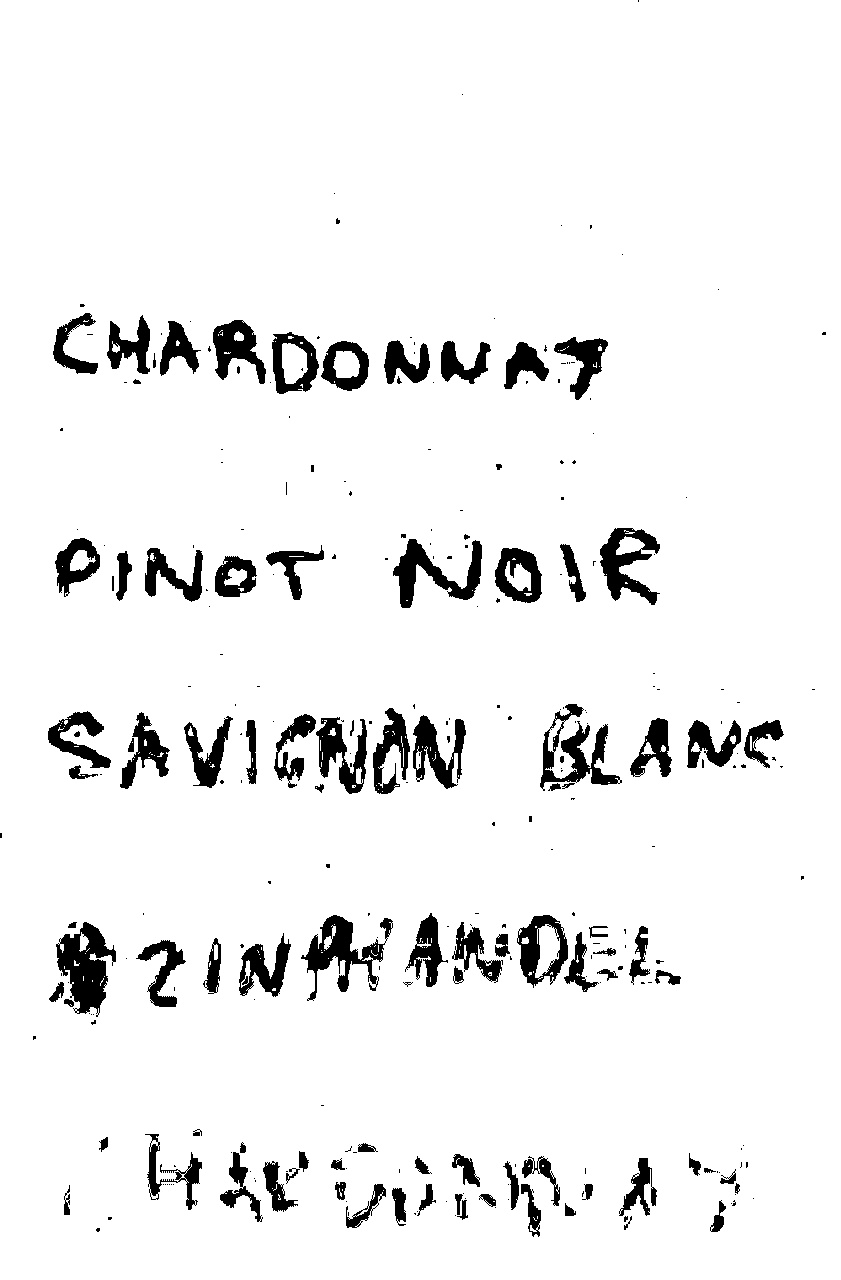 CHARDONNAY
PINOT NOIR
SAVIGNON BLANC
ZINPHANDEL
CHARDONNAY